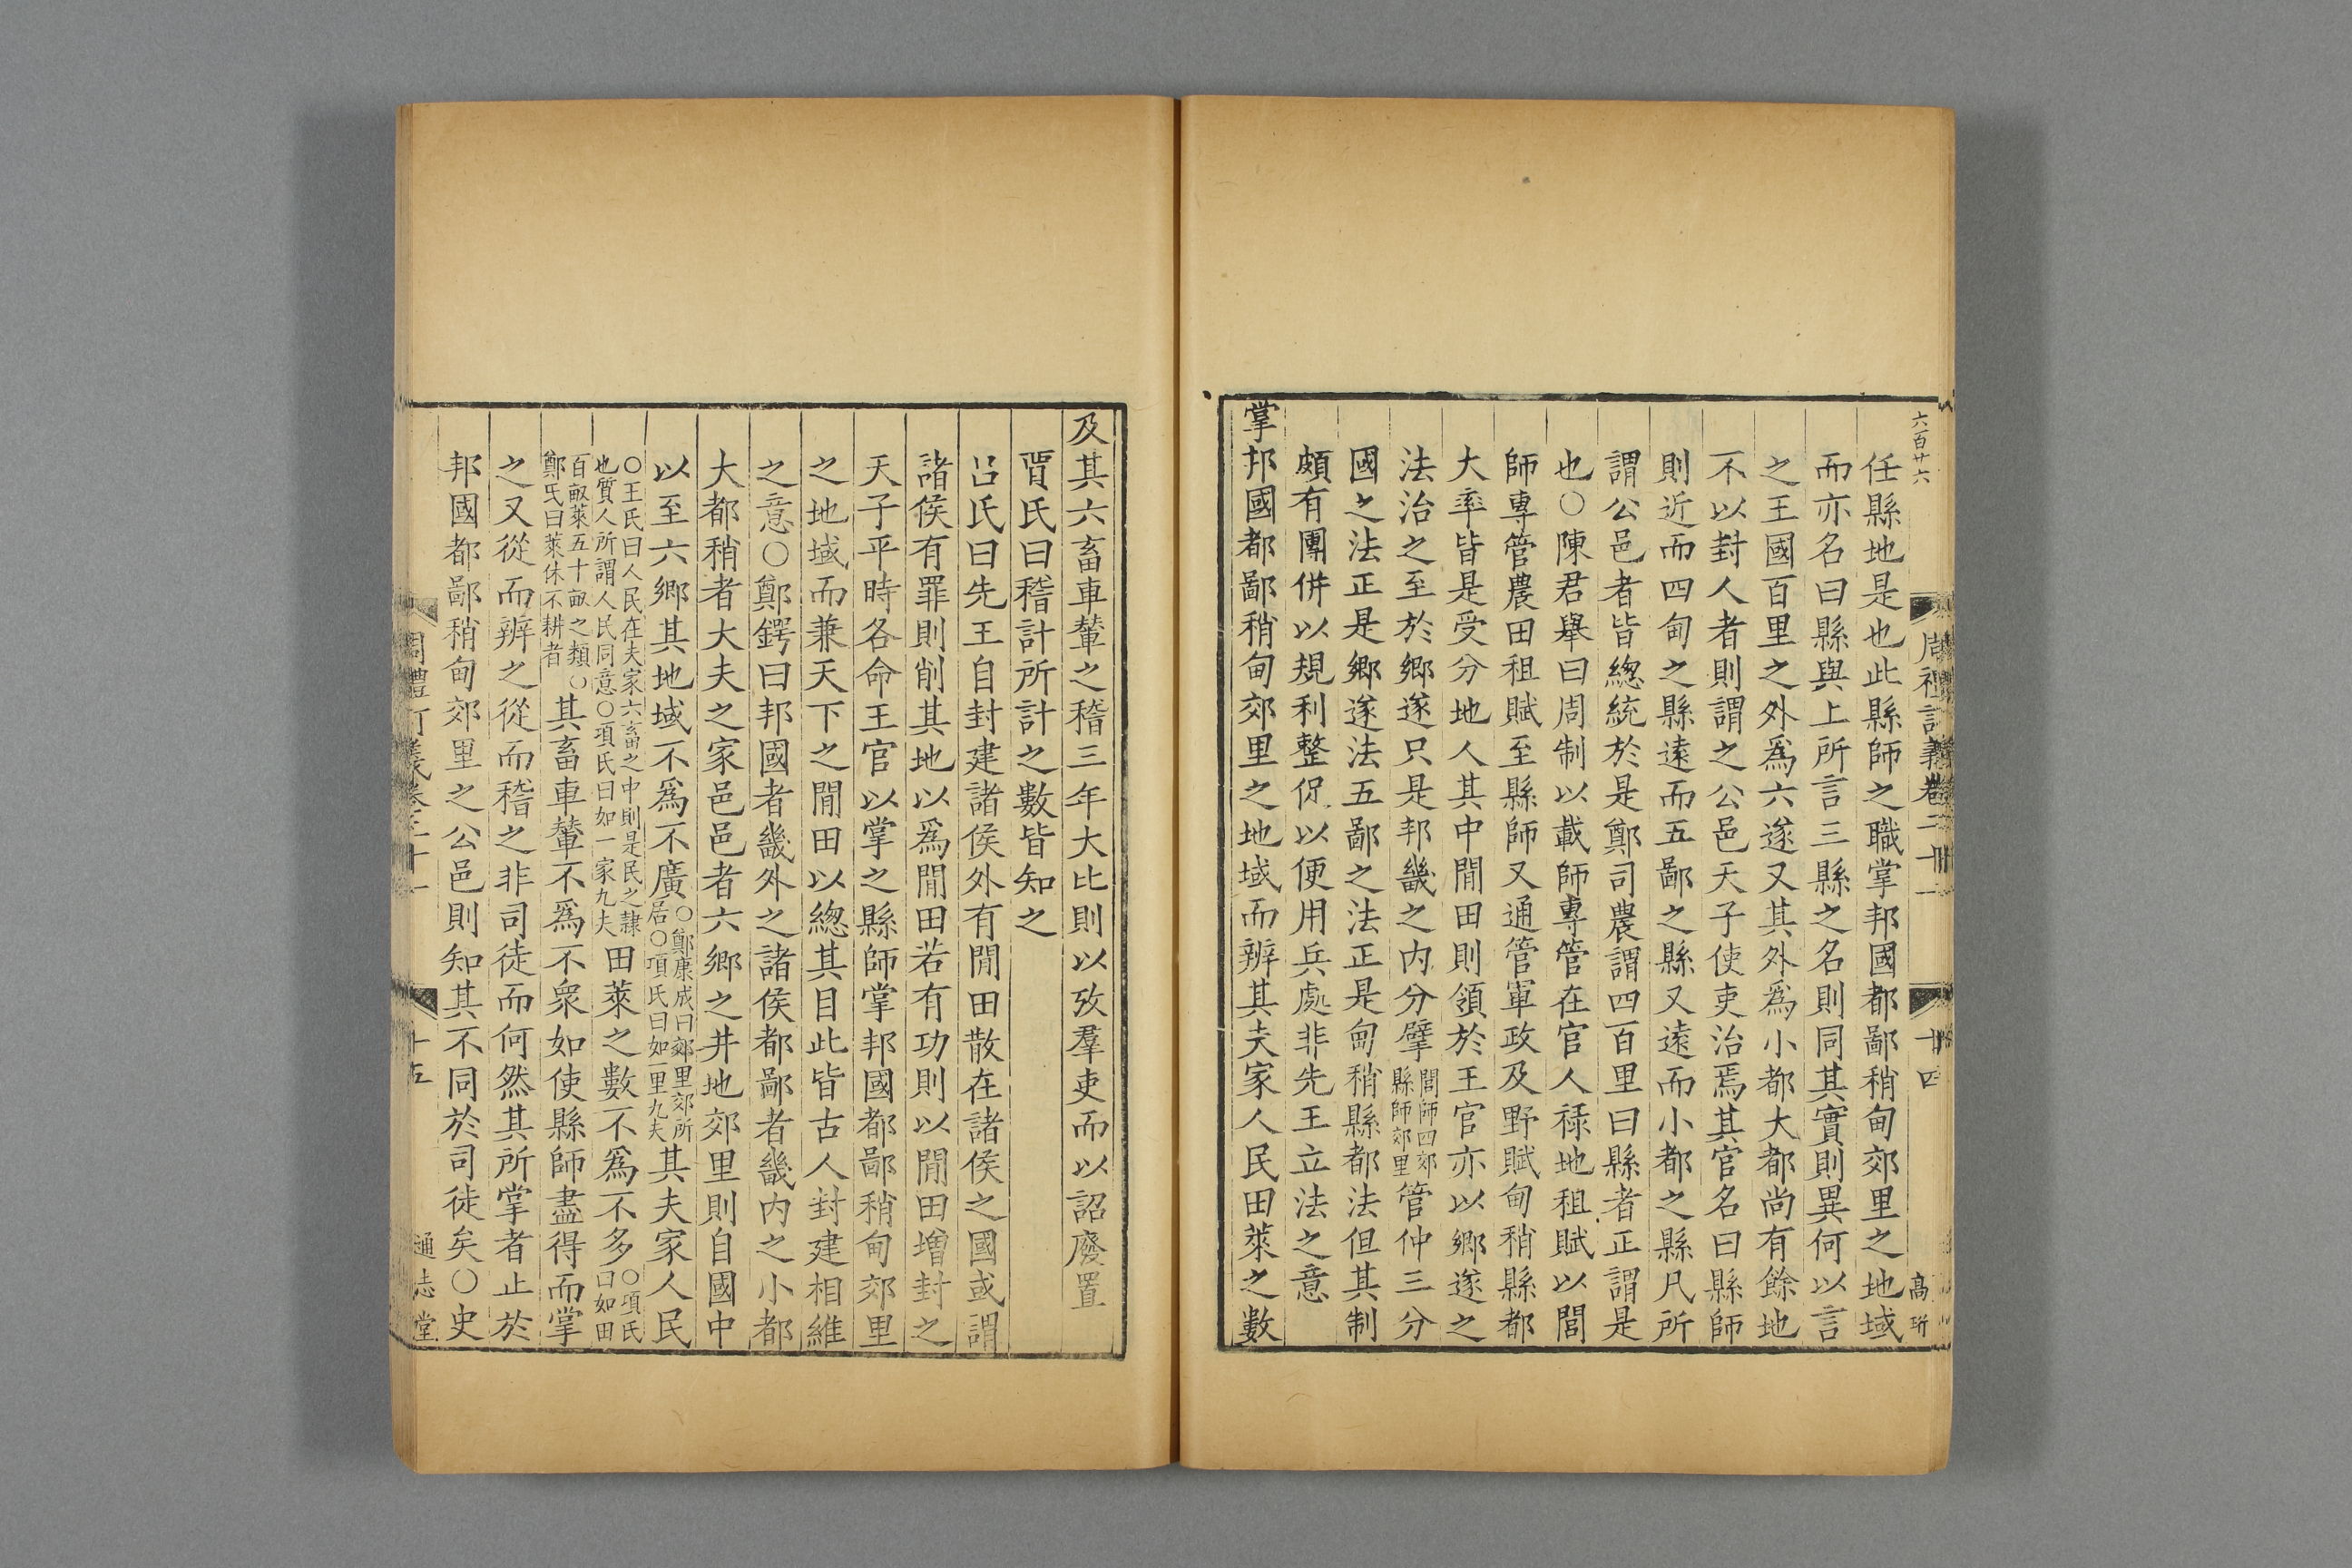 六百廿六
周禮訂義卷二十一
十四
高珩
任縣地是也此縣師之職掌邦國都鄙稍甸郊里之地域
而亦名曰縣與上所言三縣之名則同其實則異何以言
之王國百里之外爲六遂又其外爲小都大都尚有餘地
不以封人者則謂之公邑天子使吏治焉其官名曰縣師
則近而四甸之縣遠而五鄙之縣又遠而小都之縣凡所
謂公邑者皆緫統於是鄭司農謂四百里曰縣者正謂是
也○陳君舉曰周制以載師專管在官人祿地租賦以閭
師專管農田租賦至縣師又通管軍政及野賦甸稍縣都
大率皆是受分地人其中閒田則領於王官亦以鄉遂之
法治之至於鄉遂只是邦畿之内分擘閭師四郊縣師郊里管仲三分
國之法正是鄉遂法五鄙之法正是甸稍縣都法但其制
頗有團併以規利整促以便用兵處非先王立法之意
掌邦國都鄙稍甸郊里之地域而辨其夫家人民田萊之數
及其六畜車輦之稽三年大比則以攷羣吏而以詔廢置
賈氏曰稽計所計之數皆知之
吕氏曰先王自封建諸侯外有閒田散在諸侯之國或謂
諸侯有罪則削其地以爲閒田若有功則以閒田增封之
天子平時各命王官以掌之縣師掌邦國都鄙稍甸郊里
之地域而兼天下之閒田以緫其目此皆古人封建相維
之意○鄭鍔曰邦國者畿外之諸侯都鄙者畿内之小都
大都稍者大夫之家邑邑者六鄉之井地郊里則自國中
以至六鄉其地域不爲不廣○鄭康成曰郊里郊所居○項氏曰如一里九夫其夫家人民
○王氏曰人民在夫家六畜之中則是民之隸也質人所謂人民同意○項氏曰如一家九夫田萊之數不爲不多○項氏曰如田
百畝萊五十畝之類○鄭氏曰萊休不耕者其畜車輦不爲不衆如使縣師盡得而掌
之又從而辨之從而稽之非司徒而何然其所掌者止於
邦國都鄙稍甸郊里之公邑則知其不同於司徒矣○史
周禮訂義卷二十一
十五
通志堂